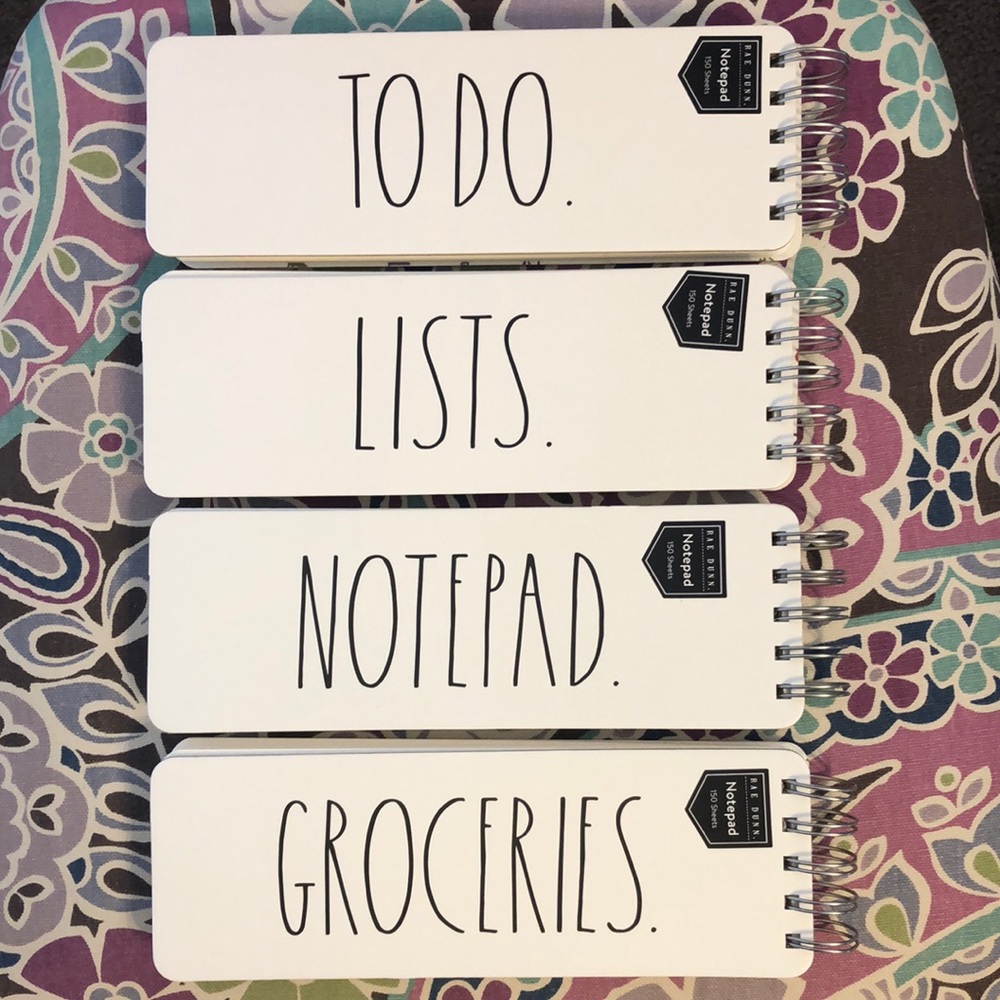 TO DO.
RAE DUNN.
Notepad
150 Sheets
LISTS.
RAE DUNN.
Notepad
150 Sheets
NOTEPAD.
RAE DUNN.
Notepad
150 Sheets
GROCERIES.
RAE DUNN.
Notepad
150 Sheets